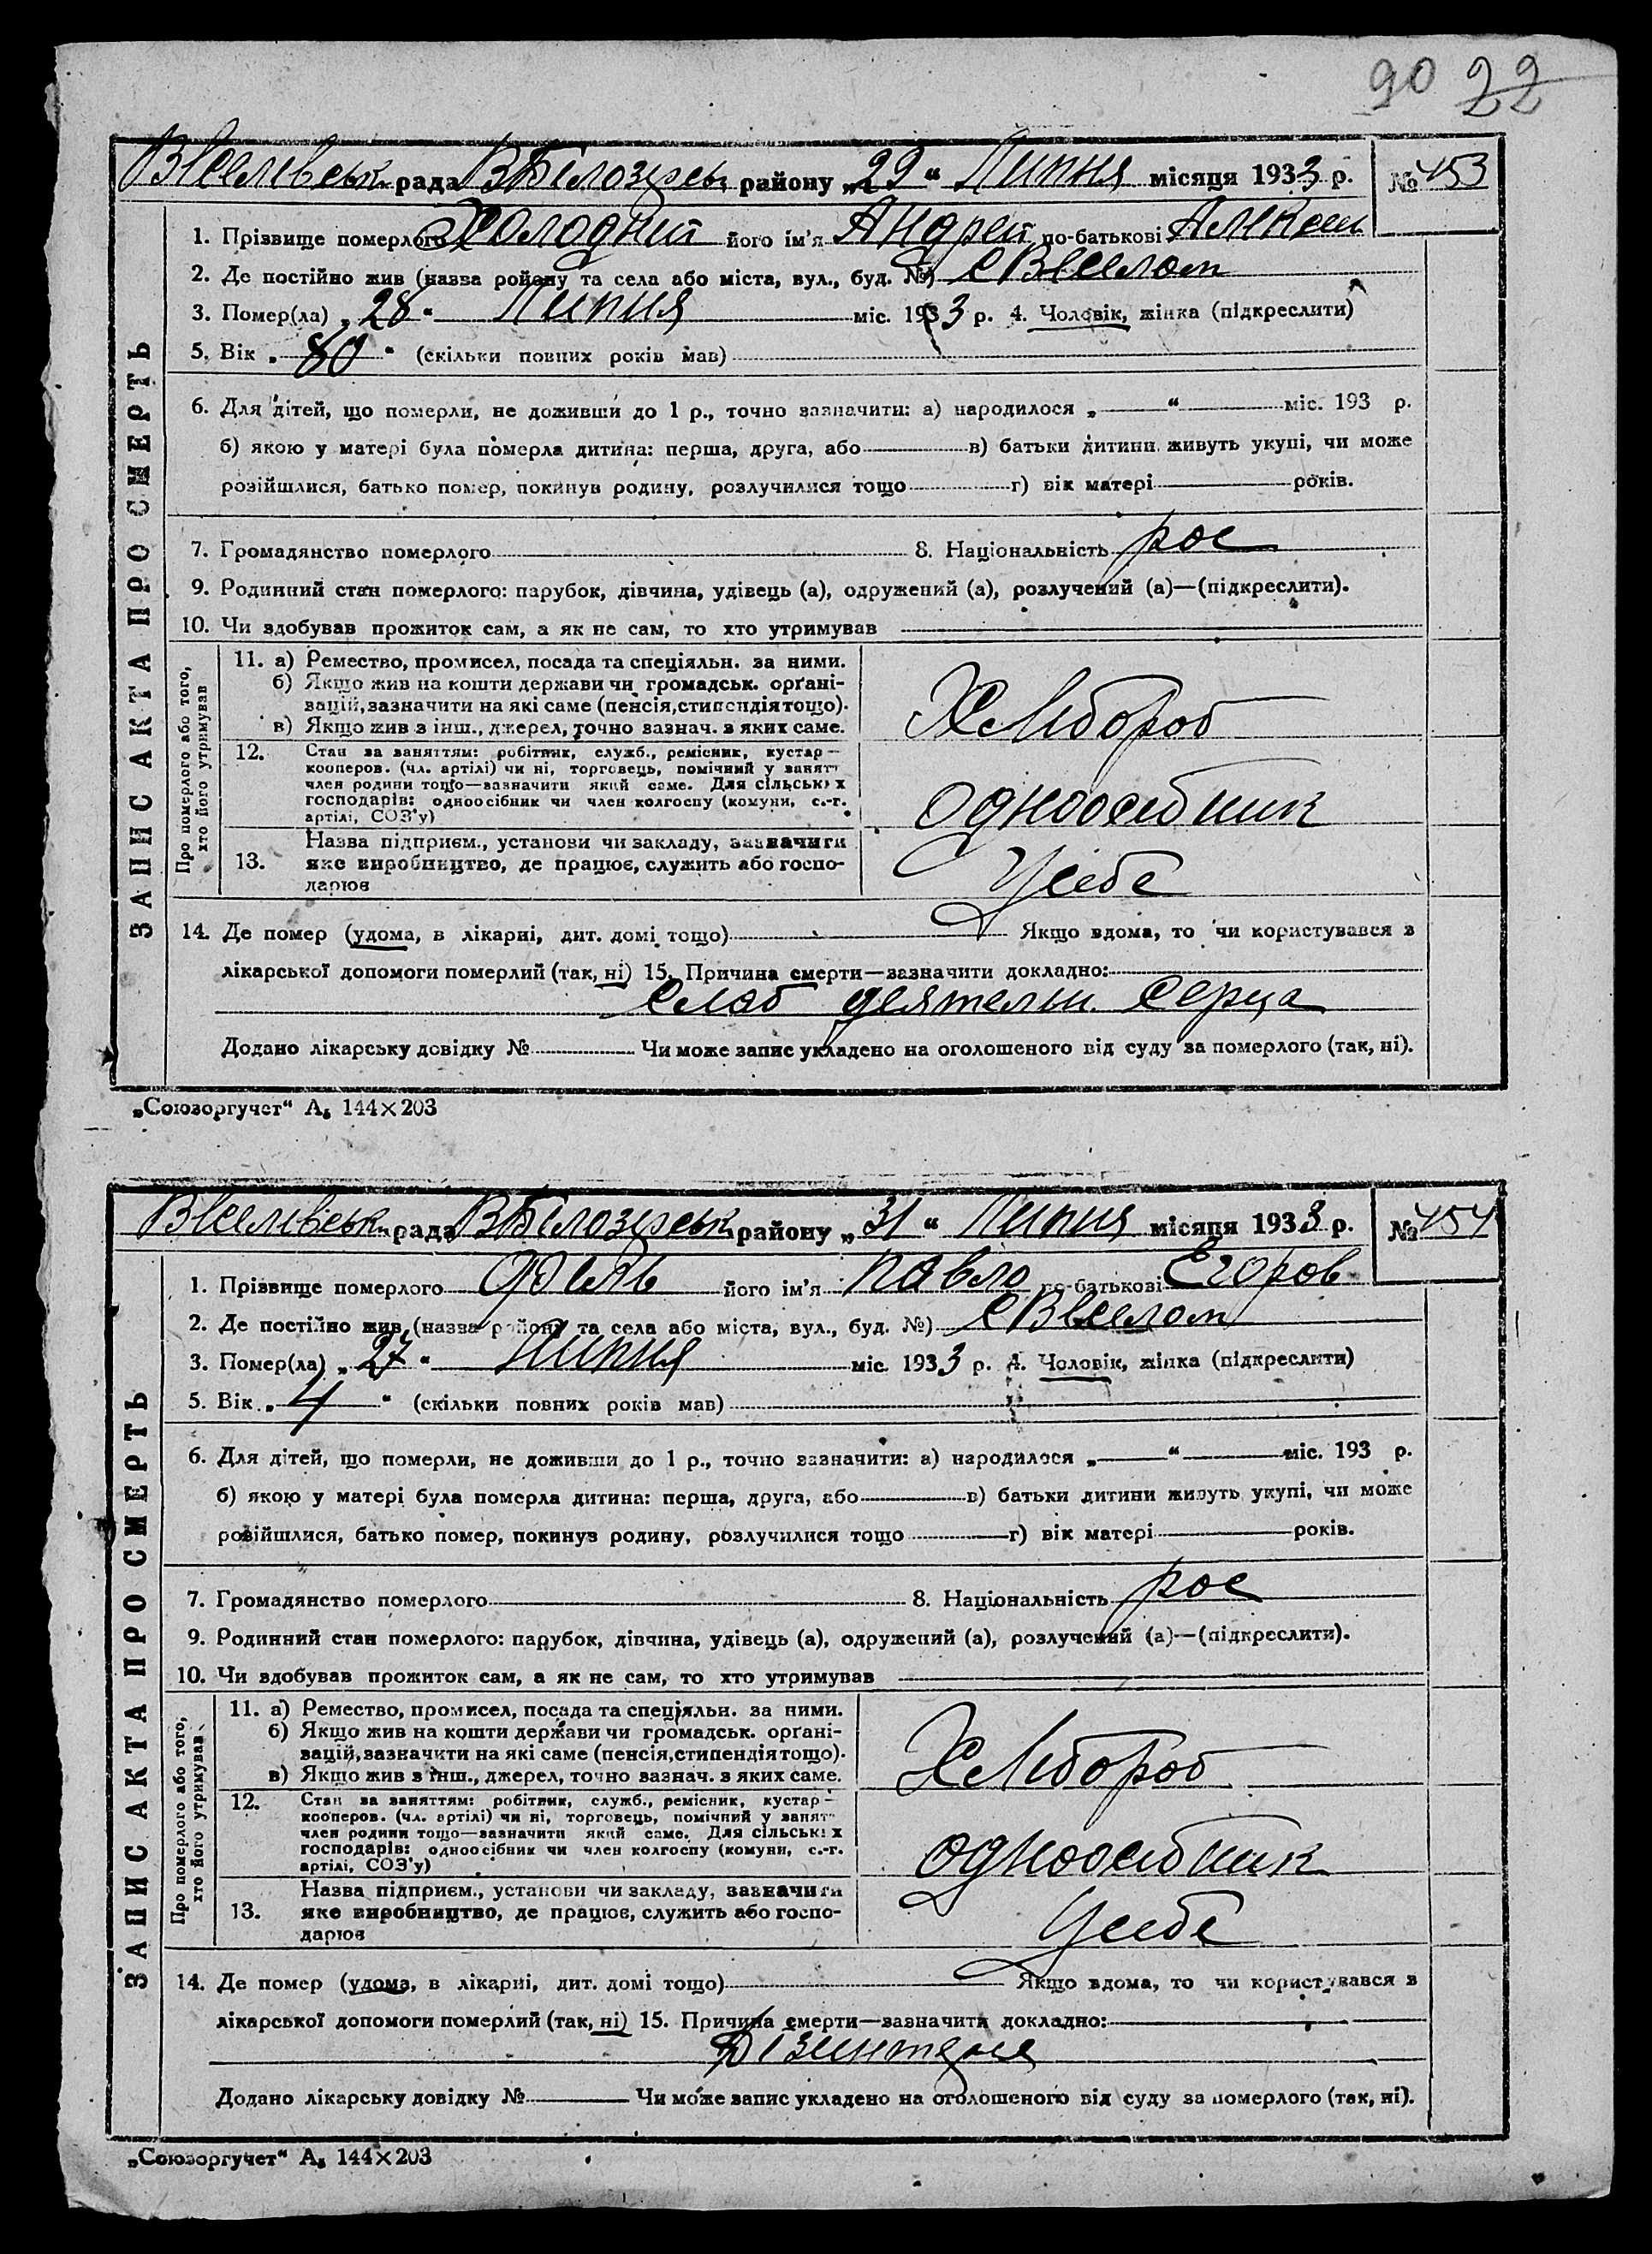 90 22
В Іселівськ рада В Білозерськ району „29“ Липня місяця 1933 р. № 153
1. Прізвище померлого Холодний його ім'я Андрей по-батькові Алексеи
2. Де постійно жив (назва району та села або міста, вул., буд. №)
3. Помер(ла) „28“ Липня міс. 1933 р. 4. Чоловік, жінка (підкреслити)
5. Вік „80“ (скільки повних років мав)
6. Для дітей, що померли, не доживши до 1 р., точно зазначити: а) народилося „ “ міс. 193 р.
б) якою у матері була померла дитина: перша, друга, або в) батьки дитини живуть укупі, чи може
розійшлися, батько помер, покинув родину, розлучилися тощо г) вік матері років.
7. Громадянство померлого 8. Національність рос
9. Родинний стан померлого: парубок, дівчина, удівець (а), одружений (а), розлучений (а)—(підкреслити).
10. Чи здобував прожиток сам, а як не сам, то хто утримував
ЗАПИС АКТА ПРО СМЕРТЬ
Про померлого або того,
хто його утримував
11. а) Ремество, промисел, посада та спеціяльн. за ними.
б) Якщо жив на кошти держави чи громадськ. орґані-
зацій, зазначити на які саме (пенсія, стипендія тощо).
в) Якщо жив з інш., джерел, точно зазнач. з яких саме.
Хлибороб
12. Стан за заняттям: робітник, служб., ремісник, кустар—
кооперов. (чл. артілі) чи ні, торговець, помічний у занятт
член родини тощо—зазначити який саме. Для сільських
господарів: одноосібник чи член колгоспу (комуни, с.-г.
артілі, СОЗ'у)
одноосибник
13. Назва підприєм., установи чи закладу, зазначити
яке виробництво, де працює, служить або госпо-
дарює
Усебе
14. Де помер (удома, в лікарні, дит. домі тощо) Якщо вдома, то чи користувався з
лікарської допомоги померлий (так, ні) 15. Причина смерти—зазначити докладно:
слаб деятельн. серца
Додано лікарську довідку № Чи може запис укладено на оголошеного від суду за померлого (так, ні).
„Союзоргучет“ А₅ 144×203
В Іселівськ рада В Білозерськ району „31“ Липня місяця 1933 р. № 154
1. Прізвище померлого його ім'я Павло по-батькові Егоров
2. Де постійно жив (назва району та села або міста, вул., буд. №)
3. Помер(ла) „27“ Липня міс. 1933 р. 4. Чоловік, жінка (підкреслити)
5. Вік „4“ (скільки повних років мав)
6. Для дітей, що померли, не доживши до 1 р., точно зазначити: а) народилося „ “ міс. 193 р.
б) якою у матері була померла дитина: перша, друга, або в) батьки дитини живуть укупі, чи може
розійшлися, батько помер, покинув родину, розлучилися тощо г) вік матері років.
7. Громадянство померлого 8. Національність рос
9. Родинний стан померлого: парубок, дівчина, удівець (а), одружений (а), розлучений (а)—(підкреслити).
10. Чи здобував прожиток сам, а як не сам, то хто утримував
ЗАПИС АКТА ПРО СМЕРТЬ
Про померлого або того,
хто його утримував
11. а) Ремество, промисел, посада та спеціяльн. за ними.
б) Якщо жив на кошти держави чи громадськ. орґані-
зацій, зазначити на які саме (пенсія, стипендія тощо).
в) Якщо жив з інш., джерел, точно зазнач. з яких саме.
Хлибороб
12. Стан за заняттям: робітник, служб., ремісник, кустар—
кооперов. (чл. артілі) чи ні, торговець, помічний у занятт
член родини тощо—зазначити який саме. Для сільських
господарів: одноосібник чи член колгоспу (комуни, с.-г.
артілі, СОЗ'у)
одноосибник
13. Назва підприєм., установи чи закладу, зазначити
яке виробництво, де працює, служить або госпо-
дарює
Усебе
14. Де помер (удома, в лікарні, дит. домі тощо) Якщо вдома, то чи користувався з
лікарської допомоги померлий (так, ні) 15. Причина смерти—зазначити докладно:
Дізинтерие
Додано лікарську довідку № Чи може запис укладено на оголошеного від суду за померлого (так, ні).
„Союзоргучет“ А₅ 144×203